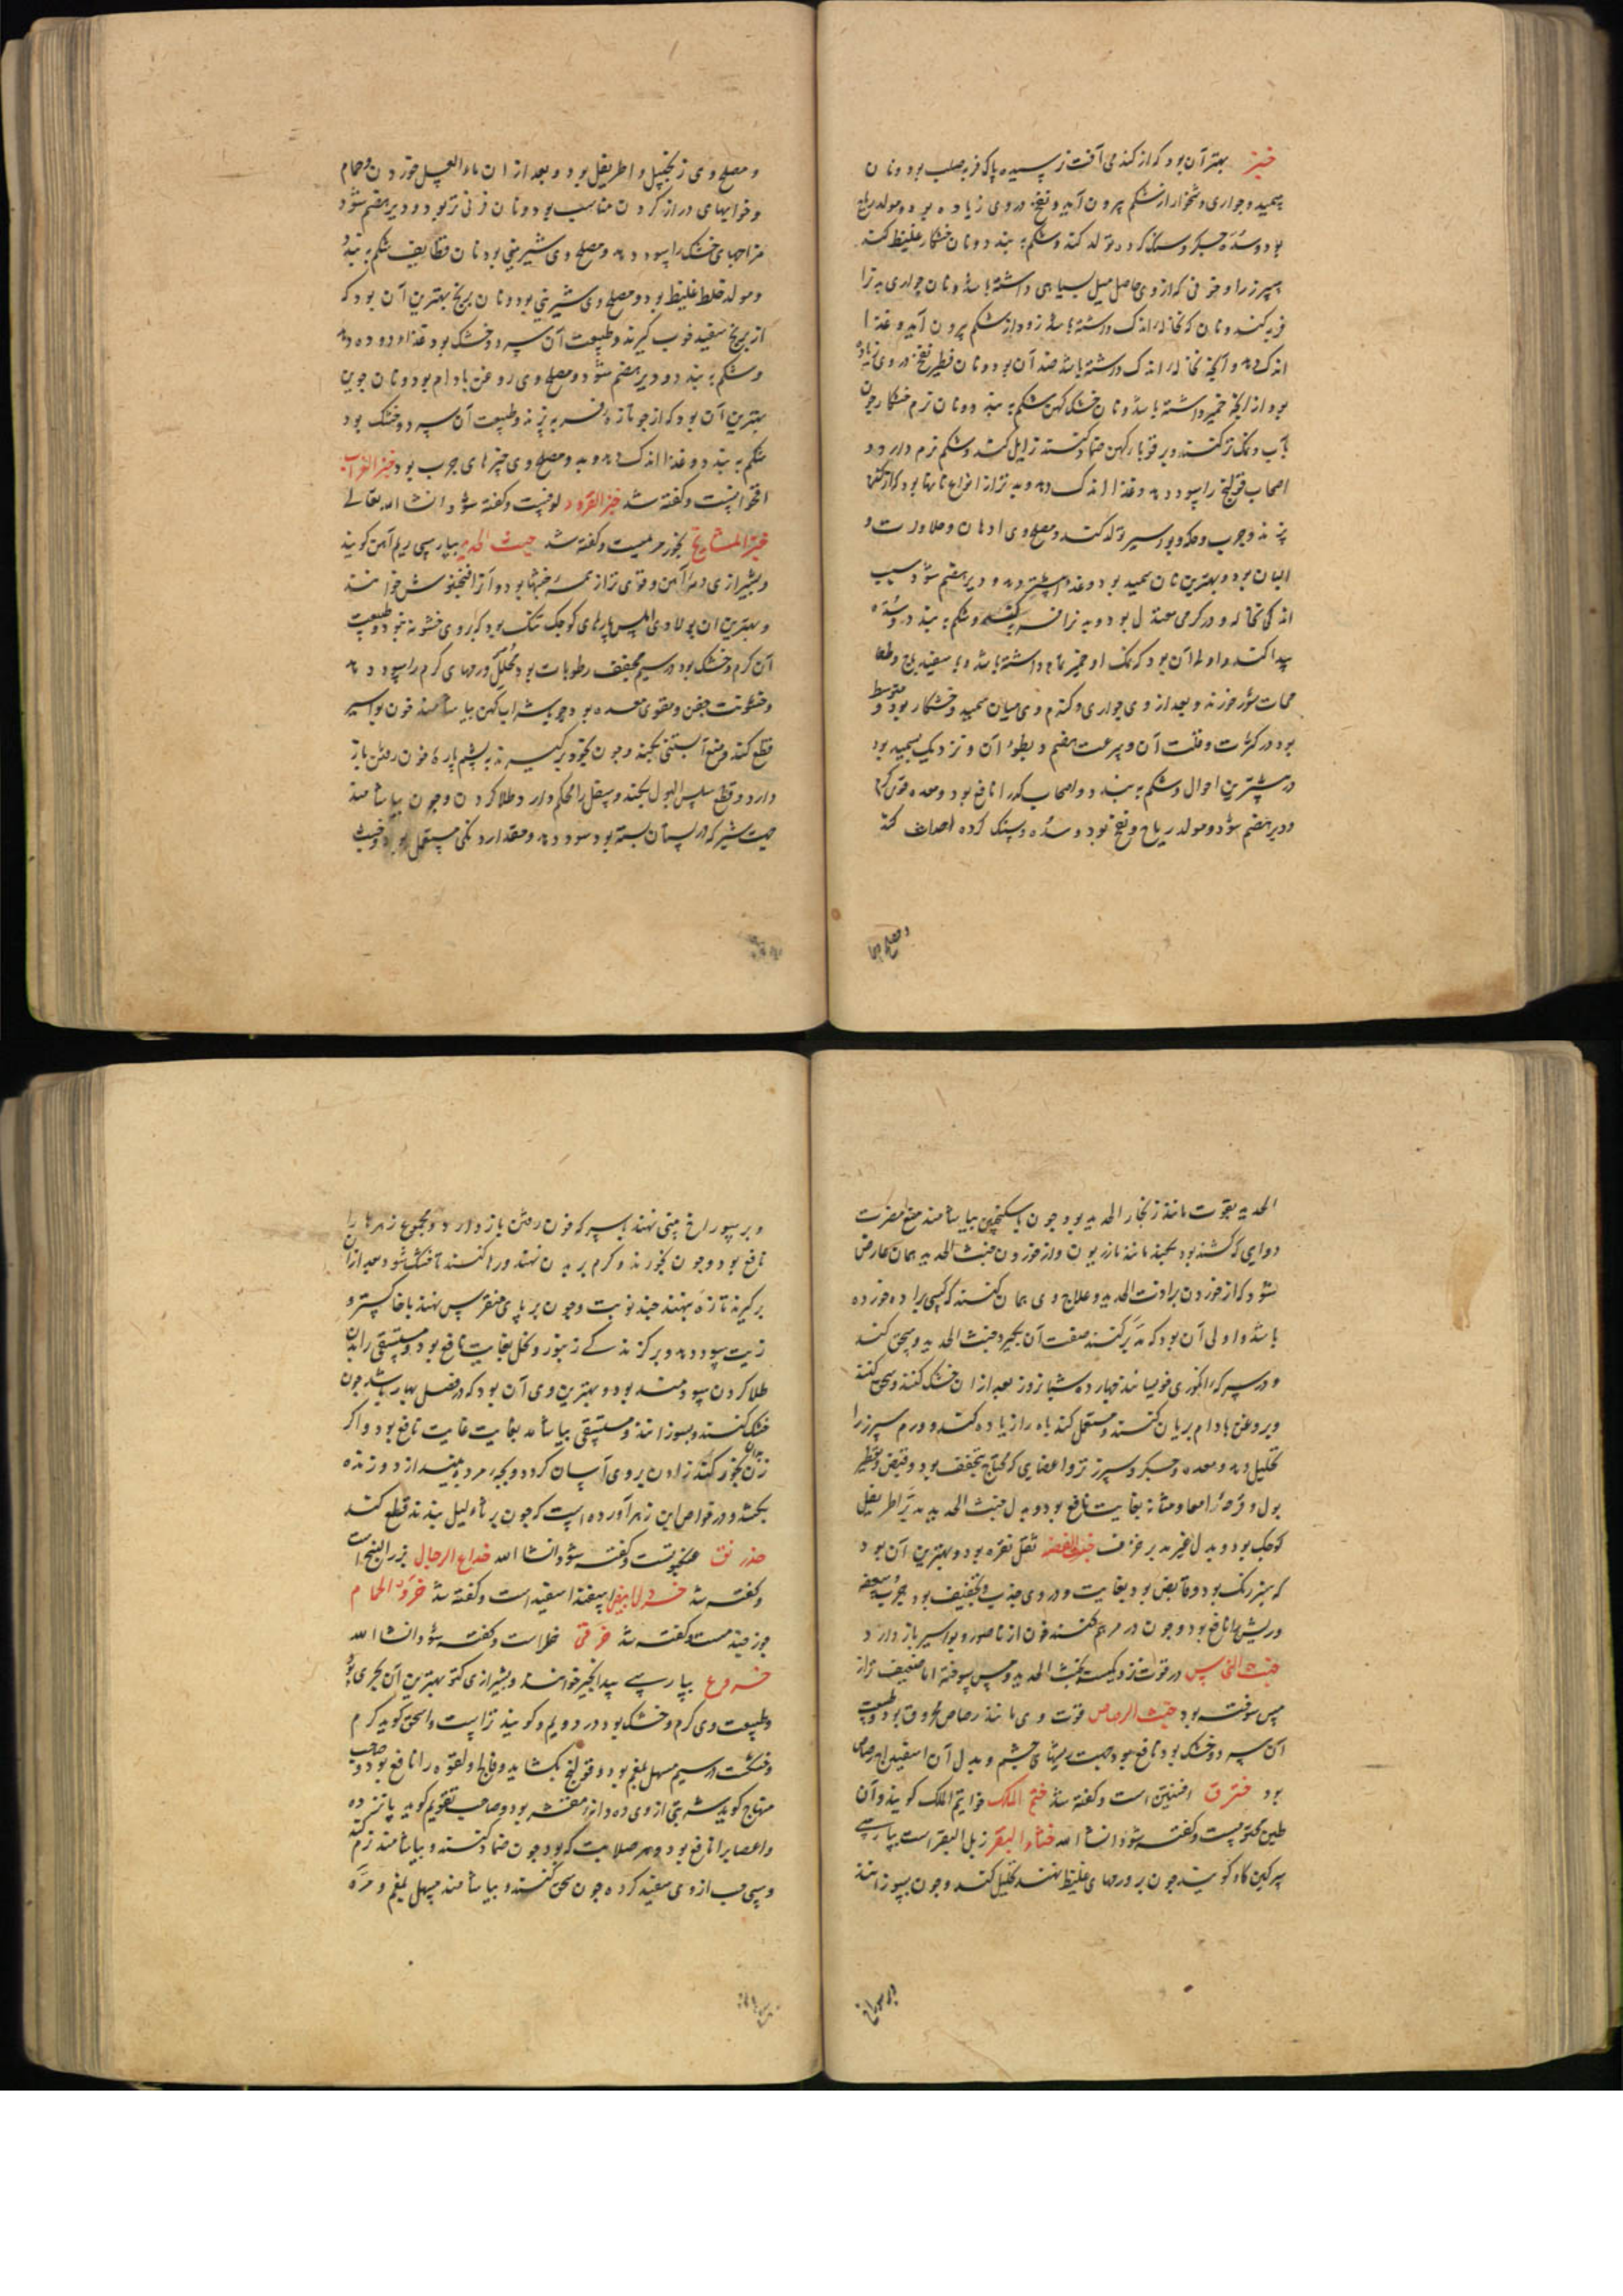 خبز بهتر آن بود که از گندمی آفت نرسیده پاک فربه صلب بود و نان
سمید و حواری و خشکار از شکم بیرون آید و نفخ در وی زیاده بود و مولد
بود و سده جگر و سنگ گرده تولد کند و شکم ببندد و نان خشکار خلط غلیظ کند
سپرز را و خونی که از وی حاصل میل بسیاهی داشته باشد و نان حواری بدن را
فربه کند و نان که نخاله اندک داشته باشد زود از شکم بیرون آید و غذا
اندک دهد و آنچه نخاله اندک داشته باشد ضد آن بود و نان فطیر نفخ در وی زیاده
بود از آنچه خمیر داشته باشد و نان خشک کهن شکم ببندد و نان نرم خشکار چون
بآب و نمک تر کنند و بر قوبا کهن ضماد کنند زایل کند و شکم نرم دارد و
اصحاب قولنج را سود دهد و غذا اندک دهد و بدتر از انواع نانها بود
پزند و جرب و حکه و بواسیر تولد کند و مصلح وی ادهان و حلاوت و
البان بود و بهترین نان سمید بود و غذا بیشتر دهد و دیر هضم شود بسبب
اندکی نخاله و در گرمی معتدل بود و بدن را فربه کند و شکم ببندد و سده
پیدا کند و اولی آن بود که نمک او خمیر تمام داشته باشد و با سفیدباج و طعام
شور خورند و بعد از وی حواری و گندم وی میان سمید و خشکار بود و متوسط
بود در کثرت و قلت آن و سرعت هضم و بطؤ آن و نزدیک بسمید بود
در بیشترین احوال و شکم ببندد و اصحاب کدر را نافع بود و معده قوی کند
و دیر هضم شود و مولد ریاح و نفخ بود و سده و سنگ گرده احداث کند
و مصلح وی زنجبیل و اطریفل بود و بعد از ان ماء العسل خوردن و حمام
و خوابهای دراز کردن مناسب بود و نان فرنی تر بود و دیر هضم شود
مزاجهای خشک را سود دهد و مصلح وی شیرینی بود نان قطایف شکم ببندد
و مولد خلط غلیظ بود و مصلح وی شیرینی بود و نان برنج بهترین آن بود که
از برنج سفید خوب گیرند و طبیعت آن سرد و خشک بود غذا دهد
و شکم ببندد و دیر هضم شود و مصلح وی روغن بادام بود و نان جوین
بهترین آن بود که از جو تازه فربه پزند و طبیعت آن سرد و خشک بود
شکم ببندد و غذا اندک دهد و مصلح وی چیزهای چرب بود خبز الغراب
اقحوانست و گفته شد خبز القرود لوفست و گفته شود انشاء الله تعالی
خبز المشایخ بخور مریمست و گفته شد خبث الحدید بپارسی ریم آهن گویند
و بشیرازی آهن و قوی‌تر از همه خبثها بود و آن را خوانند
و بهترین آن پولادی املس پارهای کوچک تنک بود که در وی خشونت نبود و طبیعت
آن گرم و خشک بود در سیم مجفف رطوبات بود و محلل ورمهای گرم را سود دهد
و خشونت جفن و مقوی معده بود و چون با شراب کهن بیاشامند خون بواسیر
قطع کند و منع آبستنی بکند و چون بخود برگیرند به پشم پاره خون رفتن باز
دارد و قطع سلس البول بکند و سفل را محکم دارد و طلا کردن و چون بیاشامند
جهت شیر که در پستان بسته بود سود دهد و مقدار مستعمل بود و خبث
الحدید بقوت مانند زنجار الحدید بود و چون با سکنجبین بیاشامند منع مضرت
دوایی که کشنده بود بکند مانند مازریون و از خوردن خبث الحدید همان عارض
شود که از خوردن برادت الحدید و علاج وی همان کنند که کسی برادۀ خورده
باشد و اولی آن بود که مدبر کنند صفت آن بگیرد خبث الحدید و سحق کند
و در سرکه انگوری خویسانند چهارده شبانروز بعد از ان خشک کنند و سحق کنند
و بروغن بادام بریان کنند و مستعمل کند باه را زیاده کند و ورم سپرز را
تحلیل دهد و معده و جگر و سپرز تر و اعضایی که محتاج تجفف بود و قبض و تقطیر
بول و قرحه امعا و مثانه بغایت نافع بود و بدل خبث الحدید مدبر اطریفل
کوچک بود و بدل غیر مدبر خزف خبث الفضه ثفل نقره بود و بهترین آن بود
که سبز رنگ بود و قابض بود بغایت و در وی جذب و تجفیف بود جرب و سعفه
و ریش را نافع بود و چون در مرهم کنند خون از ناصور و بواسیر باز دارد
خبث النحاس در قوت نزدیکست بخبث الحدید و مس سوخته اما ضعیف‌تر از
مس سوخته بود خبث الرصاص قوت وی مانند رصاص محروق بود و طبیعت
آن سرد و خشک بود نافع بود جهت ریشهای چشم و بدل آن اسفیداج رصاص
بود خترق افسنتین است و گفته شد ختم الملک خواتیم الملک گویند و آن
طین مختومست و گفته شود انشاء الله خثاء البقر زبل البقر است بپارسی
سرگین گاو گویند چون بر ورمهای غلیظ نهند تحلیل کند و چون بسوزانند
و بر سوراخ بینی نهند با سرکه خون رفتن باز دارد و مجموع زهرها را
نافع بود و چون بخورند و گرم بر بدن نهند و رها کنند تا خشک شود بعد از ان
برگیرند تازه بنهند چند نوبت و چون بر پای منقرس نهند با خاکستر و
زیت سود دهد و بر گزندگی زنبور و نحل بغایت نافع بود و مستسقی را بدان
طلا کردن سودمند بود و بهترین وی آن بود که در فصل بهار باشد چون
خشک کنند و بسوزانند و مستسقی بیاشامد بغایت غایت نافع بود و اگر
زن بخور کند زادن بر وی آسان گردد و بچه مرده بیندازد و زنده
بکشد و در خواص ابن زهر آورده است که چون بر ثآلیل بندند قطع کند
خدرنق عنکبوتست و گفته شود انشاء الله خداع الرجال بزر البنج است
و گفته شد خردل ابیض اسپنداسفید است و گفته شد خرو الحمام
جوز جندمست و گفته شد خرفی خلر است و گفته شود انشاء الله
خروع بپارسی بیدانجیر خوانند و بشیرازی کنتو بهترین آن بحری بود
و طبیعت وی گرم و خشک بود در دویم و گویند تر است و اسحق گوید گرم
و خشکست در سیم مسهل بلغم بود و قولنج بگشاید و فالج و لقوه را نافع بود و صاحب
منهاج گوید شربتی از وی ده دانه مقشر بود و صاحب تقویم گوید پانزده
و اعصاب را نافع بود و هر صلابت که بود چون ضماد کنند و بیاشامند نرم کند
و سی حب از وی سفید کرده چون سحق کنند و بیاشامند مسهل بلغم و مره